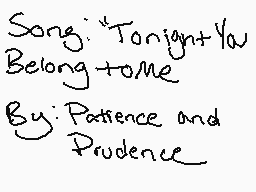 Song: "Tonight You
Belong to Me
By: Patience and
Prudence